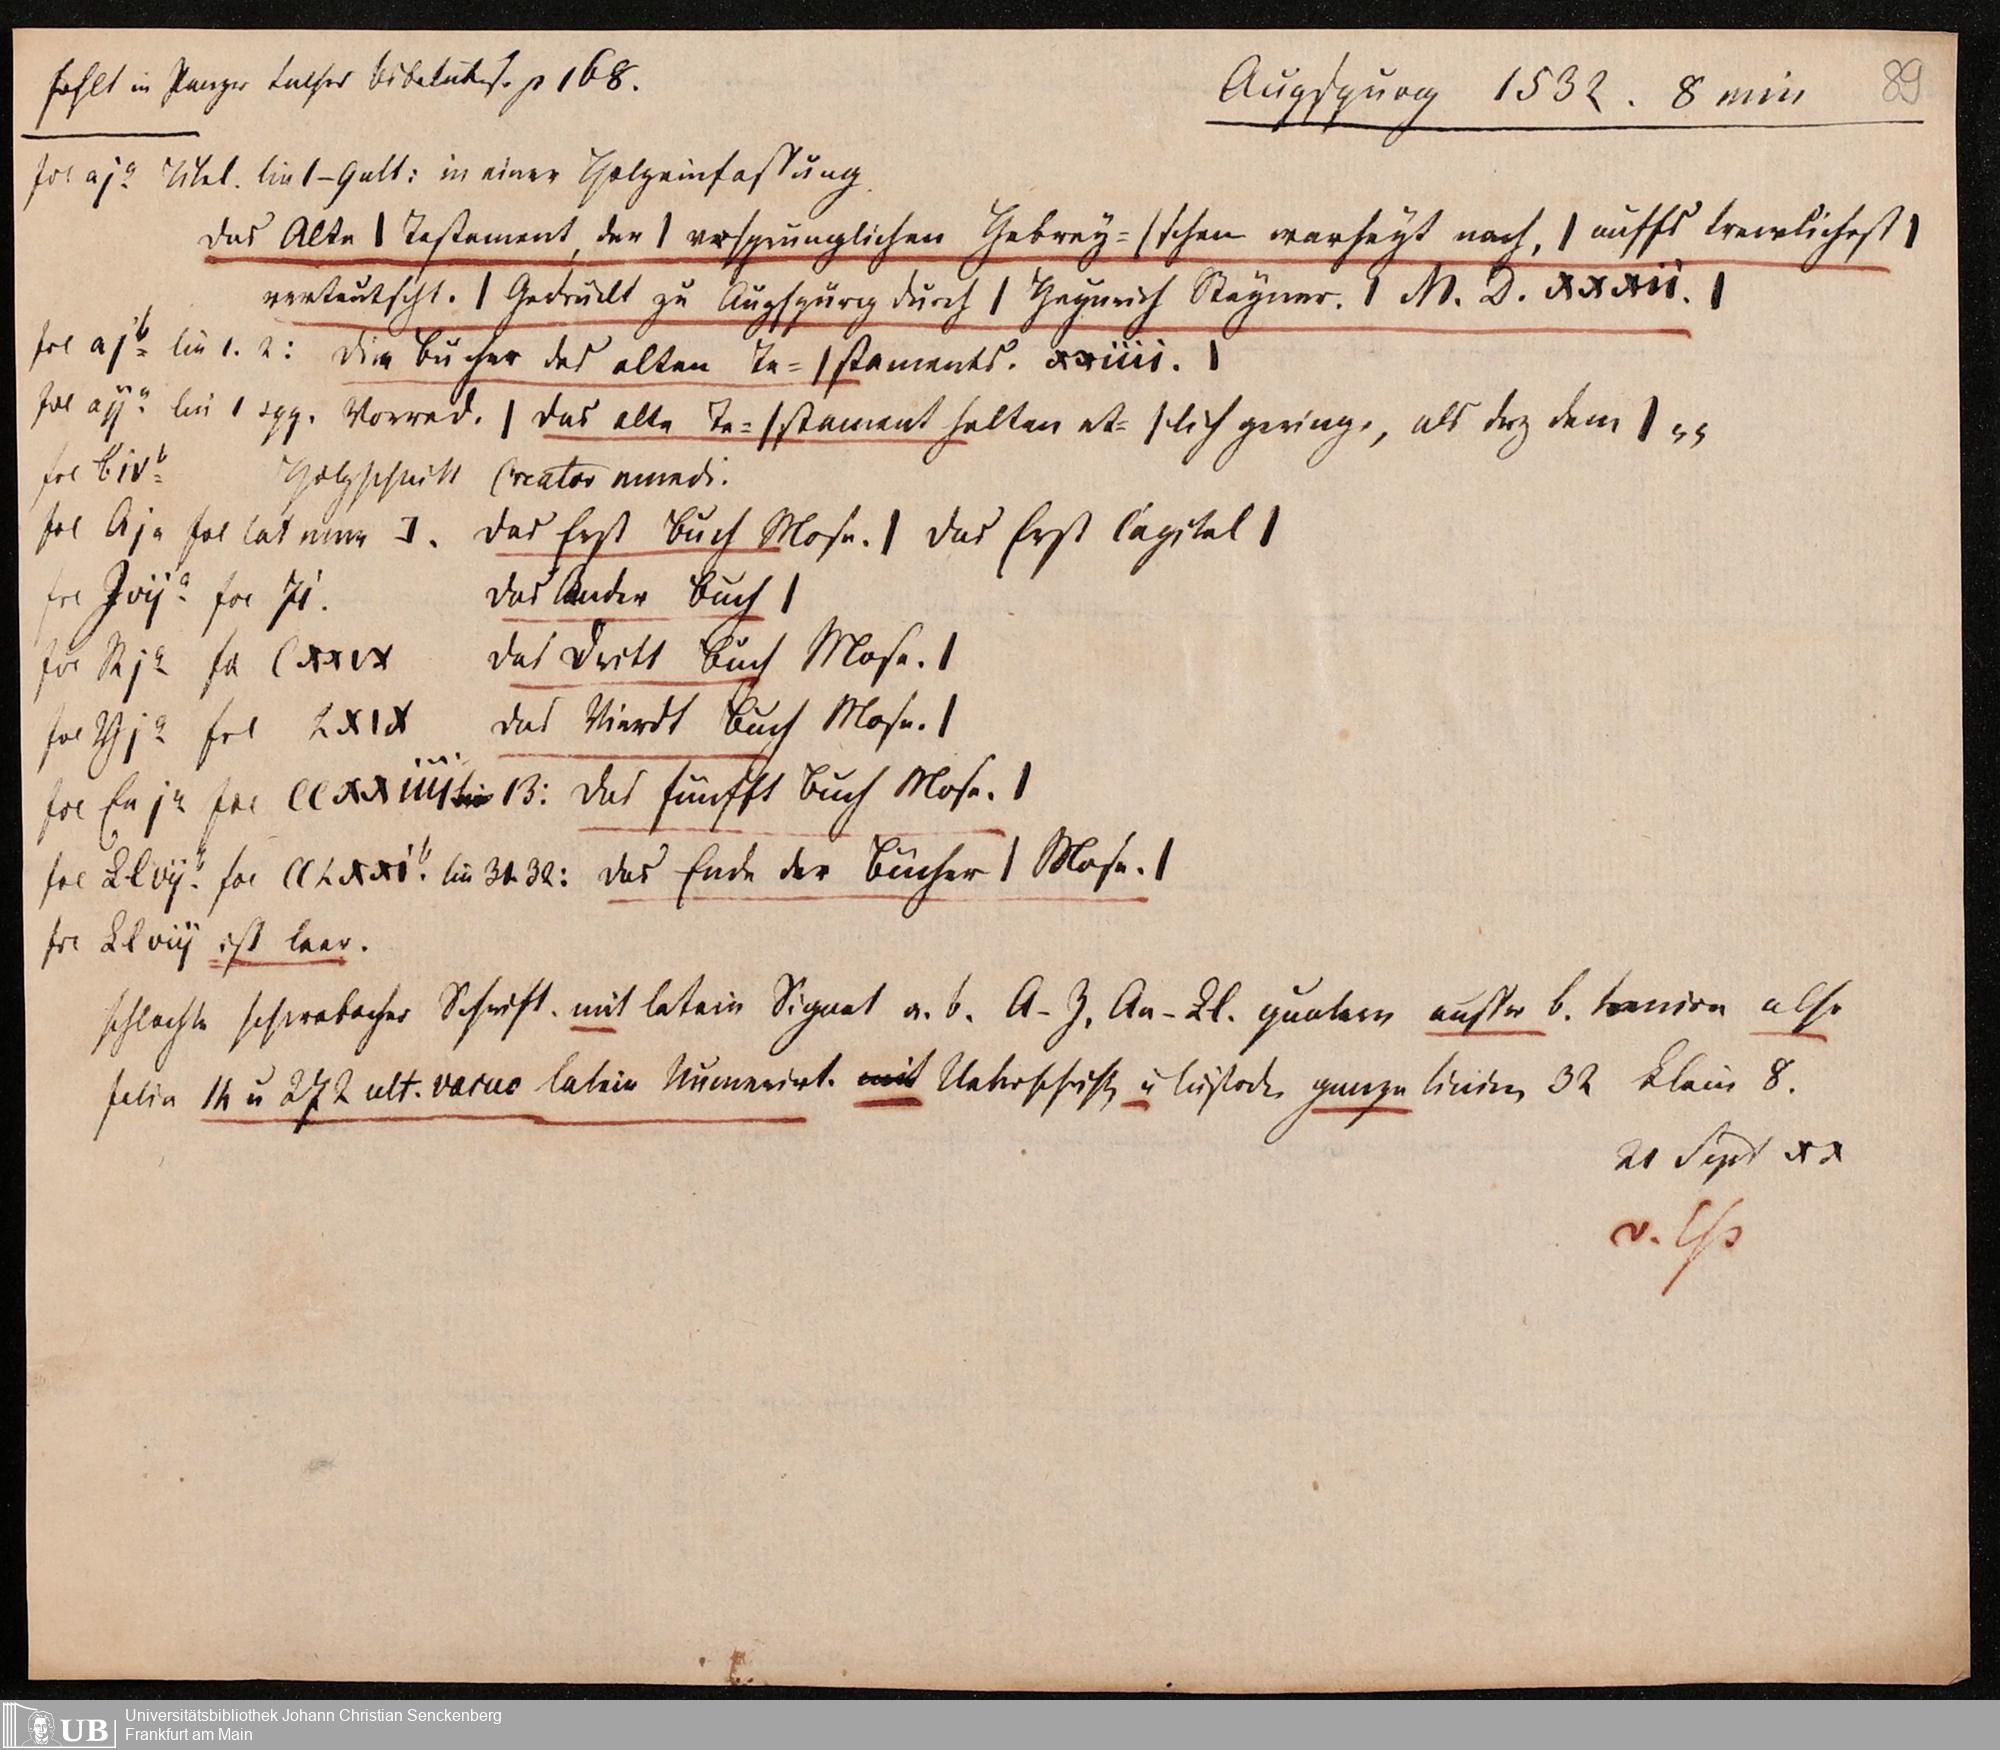 fehlt in Panzer Luthers Bibelübers. p 168.
Augspurg 1532. 8 min 89
fol aja Titel. lin 1–9ult: in einer Holzeinfassung
Das Alte | Testament, der | vrsprunglichen Hebrey= | schen warheyt nach, | auffs trewlichest |
verteutscht. | Gedruckt zu Augspurg durch | Heynrich Steyner. | M. D. xxxii. |
fol ajb lin 1. 2: Die bücher des alten Te= | staments. xxiiii. |
fol aija lin 1 sqq. Vorred. | Das alte Te= | stament halten et= | lich geringe, als dz dem |
fol bivb Holzschnitt Creator mundi.
fol Aja fol lat num I. Das Erst buch Mose. | Das Erst Capitel |
fol Jvija fol 71. Das Ander buch |
fol Rja fol Cxxix Das Dritt buch Mose. |
fol Yja fol LXIX Das Vierdt buch Mose. |
fol Eeja fol CCxxiiii lin 13: Das fünfft buch Mose. |
fol Llvijb fol CCLxxib lin 31 32: Das Ende der Bücher | Mose. |
fol Llviij ist leer.
schlechte schwabacher Schrift. mit latein Signat a. b. A–Z, Aa–Ll. quatern ausser b. ternion also
folia 14 u 272 ult. vacuo latein Numerirt. mit Ueberschrift u Custoden ganze linien 32 klein 8.
21 Sept xx
v. Eß
Universitätsbibliothek Johann Christian Senckenberg
Frankfurt am Main
UB